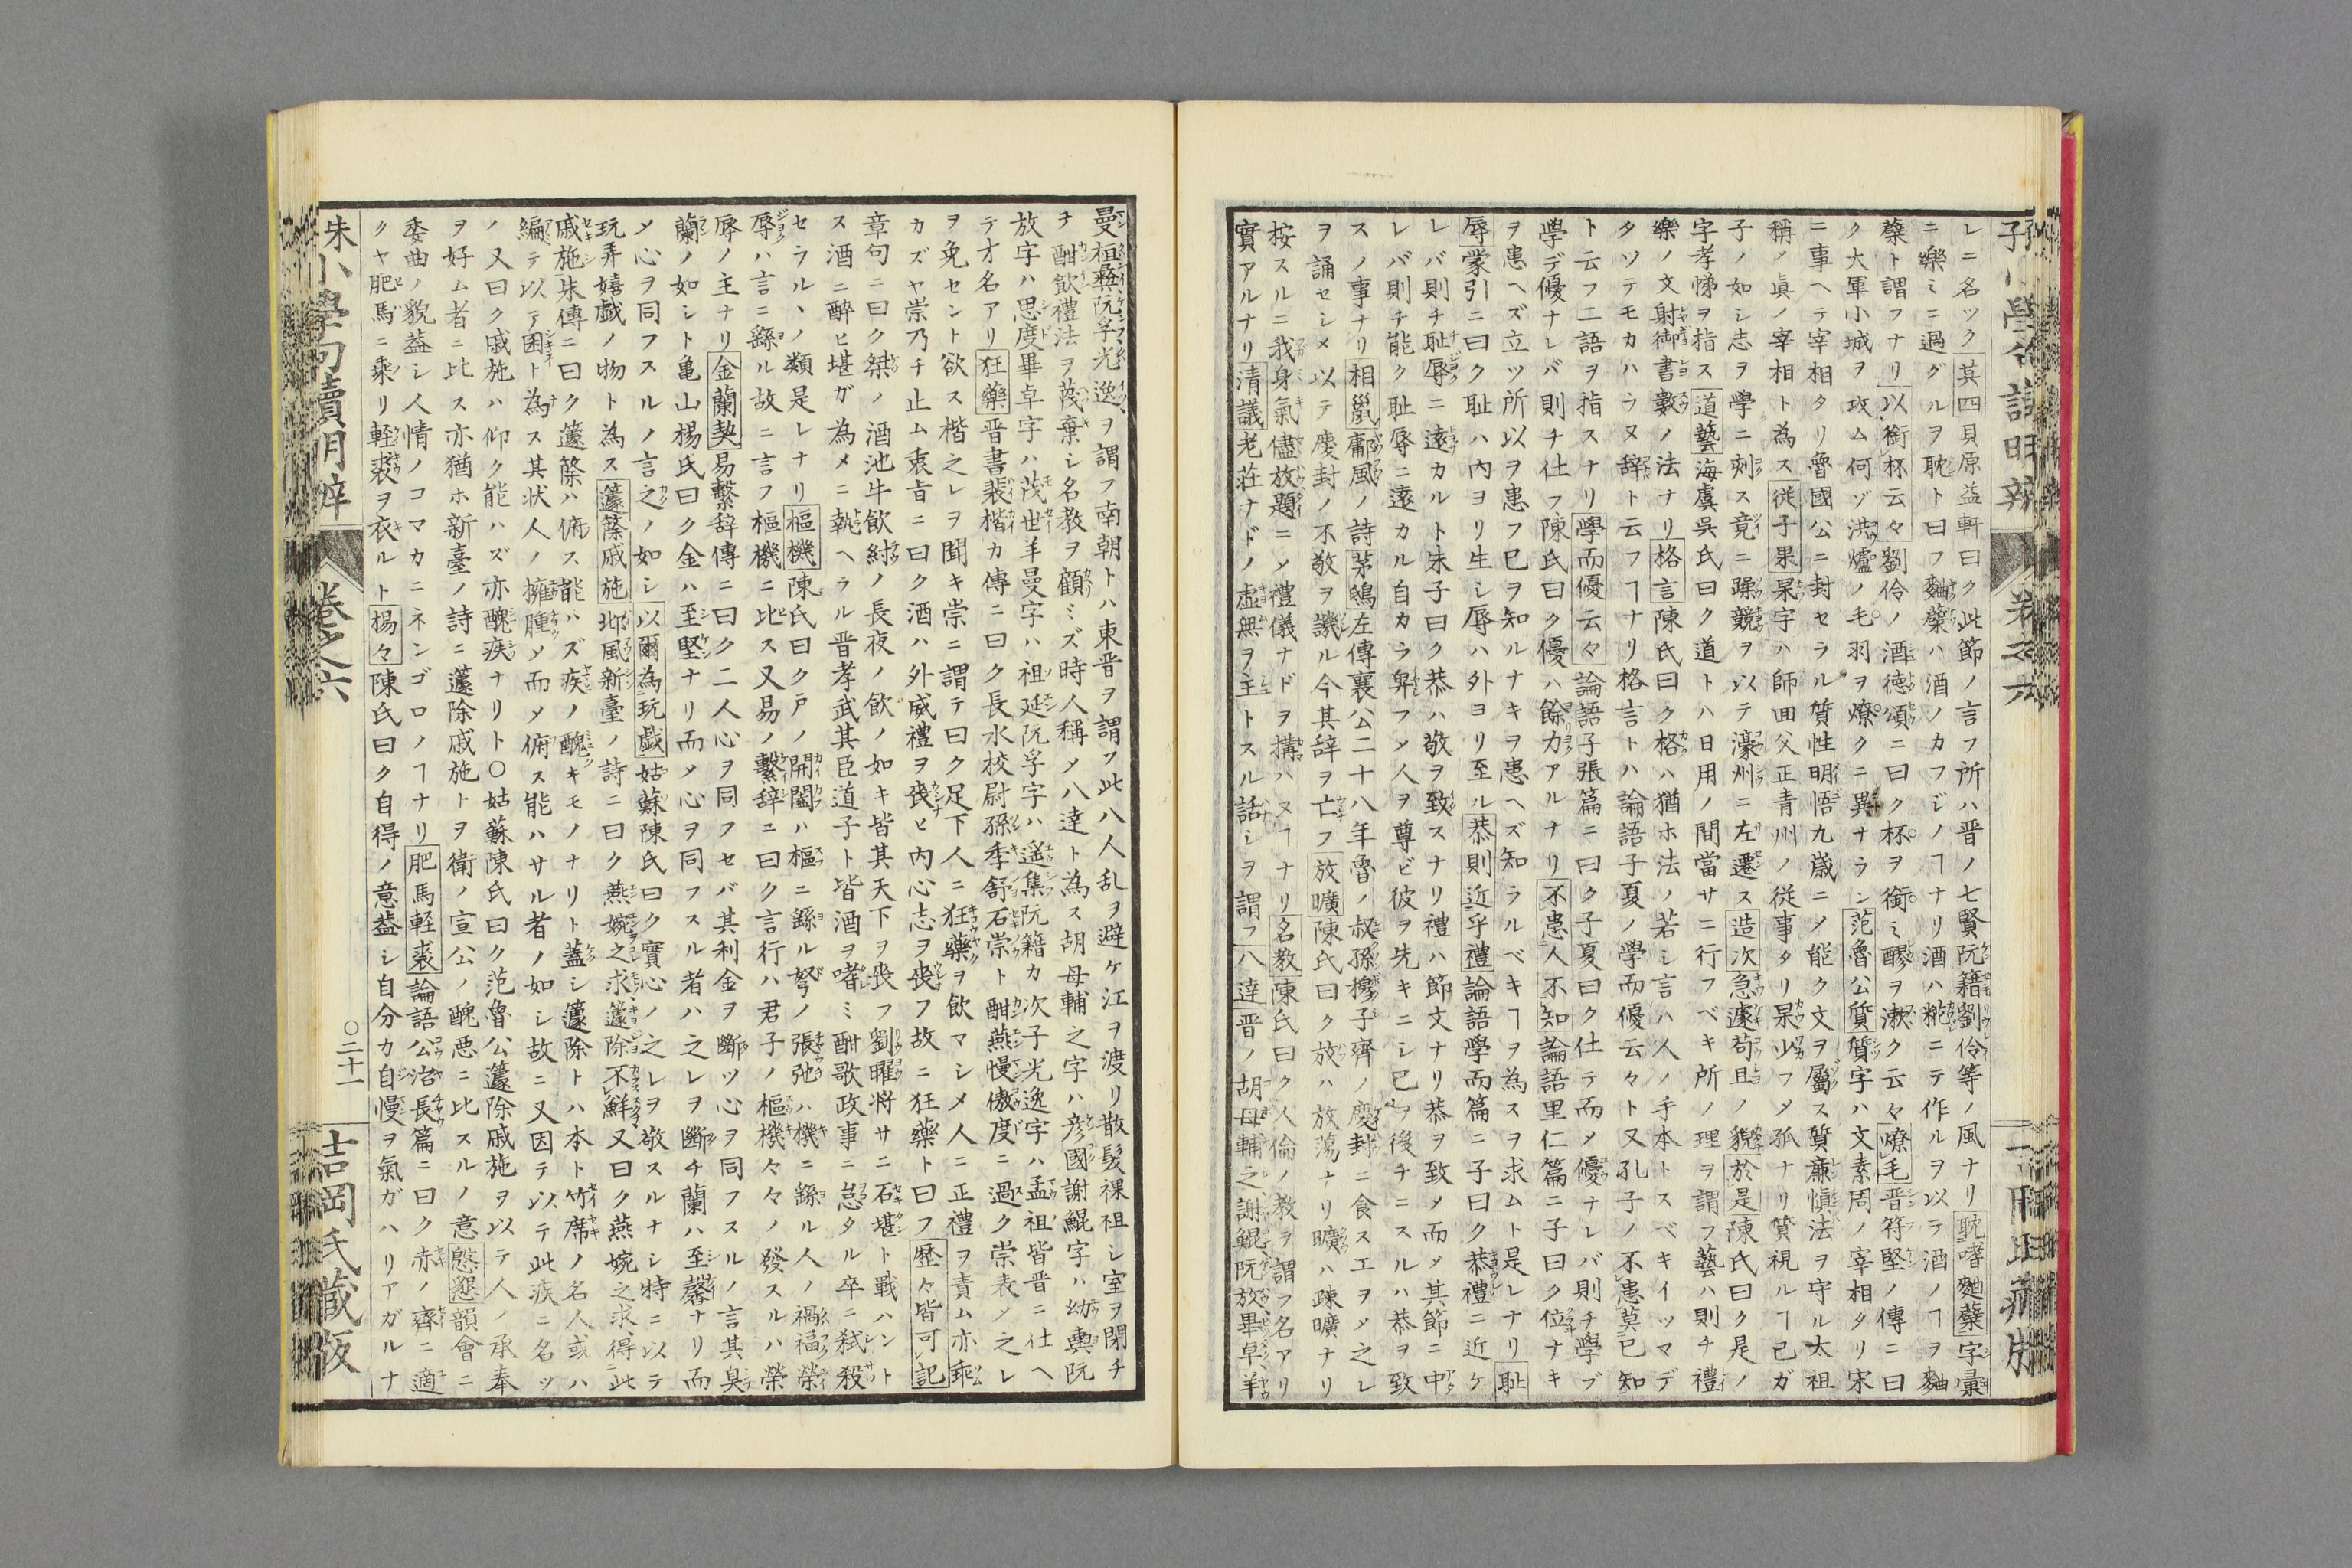 レニ名ック其四貝原益軒曰ク此節ノ言フ所ハ晋ノ七賢阮籍劉伶等ノ風ナリ耽嗜麹蘖字彙
ニ樂ミニ過グルヲ耽ト曰フ麹蘖ハ酒ノカフジノヿナリ酒ハ糀ニテ作ルヲ以テ酒ノヿヲ麹
蘖ト謂フナリ以銜杯云々劉伶ノ酒德頌ニ曰ク杯ヲ銜ミ醪ヲ漱ク云々燎毛晋符堅ノ傳ニ曰
ク大軍小城ヲ攻ム何ゾ洪爐ノ毛羽ヲ燎クニ異ナラン范魯公質質字ハ文素周ノ宰相タリ宋
ニ事ヘテ宰相タリ魯國公ニ封セラル質性明悟九歳ニメ能ク文ヲ屬ス質廉愼法ヲ守ル太祖
稱メ眞ノ宰相ト為ス従子果杲字ハ師回父正青州ノ従事タリ杲少フメ孤ナリ質視ルヿ已ガ
子ノ如シ志ヲ學ニ刺ス竟ニ躁競ヲ以テ濠州ニ左遷ス造次急遽苟且ノ貌於是陳氏曰ク是ノ
字孝悌ヲ指ス道藝海虞吳氏曰ク道トハ日用ノ間當サニ行フベキ所ノ理ヲ謂フ藝ハ則チ禮
樂ノ文射御書數ノ法ナリ格言陳氏曰ク格ハ猶ホ法ノ若シ言ハ人ノ手本トスベキイツマデ
タツテモカハラヌ辞ト云フヿナリ格言トハ論語子夏ノ學而優云々ト又孔子ノ不患莫已知
ト云フ二語ヲ指スナリ學而優云々論語子張篇ニ曰ク子夏曰ク仕テ而メ優ナレバ則チ學ブ
學デ優ナレバ則チ仕フ陳氏曰ク優ハ餘力アルナリ不患人不知論語里仁篇ニ子曰ク位ナキ
ヲ患ヘズ立ツ所以ヲ患フ已ヲ知ルナキヲ患ヘズ知ラルベキヿヲ為スヲ求ムト是レナリ耻
辱蒙引ニ曰ク耻ハ內ヨリ生シ辱ハ外ヨリ至ル恭則近乎禮論語學而篇ニ子曰ク恭禮ニ近ケ
レバ則チ耻辱ニ遠カルト朱子曰ク恭ハ敬ヲ致スナリ禮ハ節文ナリ恭ヲ致メ而メ其節ニ中
レバ則チ能ク耻辱ニ遠カル自カラ卑フメ人ヲ尊ビ彼ヲ先キニシ已ヲ後チニスルハ恭ヲ致
スノ事ナリ相鼠鄘風ノ詩茅鴟左傳襄公二十八年魯ノ叔孫穆子齊ノ慶封ニ食スエヲメ之レ
ヲ誦セシメ以テ慶封ノ不敬ヲ譏ル今其辞ヲ亡フ放曠陳氏曰ク放ハ放蕩ナリ曠ハ疎曠ナリ
按スルニ我身氣儘放題ニメ禮儀ナドヲ搆ハヌヿナリ名教陳氏曰ク人倫ノ教ヲ謂フ名アリ
實アルナリ清議老荘ナドノ虛無ヲ主トスル話シヲ謂フ八達晋ノ胡母輔之謝鯤阮放畢卓羊
曼桓彝阮孚光逸ヲ謂フ南朝トハ東晋ヲ謂フ此八人乱ヲ避ケ江ヲ渡リ散髮裸袒シ室ヲ閉チ
チ酣飲禮法ヲ蔑棄シ名教ヲ顧ミズ時人稱メ八達ト為ス胡母輔之字ハ彦國謝鯤字ハ幼輿阮
放字ハ思度畢卓字ハ茂世羊曼字ハ祖延阮孚字ハ遥集阮籍カ次子光逸字ハ孟祖皆晋ニ仕ヘ
テ才名アリ狂藥晋書裴楷カ傳ニ曰ク長水校尉孫季舒石崇ト酣燕慢傲度ニ過ク崇表メ之レ
ヲ免セント欲ス楷之レヲ聞キ崇ニ謂テ曰ク足下人ニ狂藥ヲ飲マシメ人ニ正禮ヲ責ム亦乖
カズヤ崇乃チ止ム衷旨ニ曰ク酒ハ外威禮ヲ喪ヒ内心志ヲ喪フ故ニ狂藥ト曰フ歷々皆可記
章句ニ曰ク桀ノ酒池牛飲紂ノ長夜ノ飲ノ如キ皆其天下ヲ喪フ劉曜将サニ石堪ト戰ハント
ス酒ニ醉ヒ堪ガ為メニ執ヘラル晋孝武其臣道子ト皆酒ヲ嗜ミ酣歌政事ニ怠タル卒ニ弑殺
セラルヽノ類是レナリ樞機陳氏曰ク戸ノ開闔ハ樞ニ繇ル弩ノ張弛ハ機ニ繇ル人ノ禍福榮
辱ハ言ニ繇ル故ニ言フ樞機ニ比ス又易ノ繫辞ニ曰ク言行ハ君子ノ樞機々々ノ發スルハ榮
辱ノ主ナリ金蘭契易繫辞傳ニ曰ク二人心ヲ同フセバ其利金ヲ斷ツ心ヲ同フスルノ言其臭
蘭ノ如シト亀山楊氏曰ク金ハ至堅ナリ而メ心ヲ同フスル者ハ之レヲ斷チ蘭ハ至馨ナリ而
メ心ヲ同フスルノ言之ノ如シ以爾為玩戯姑蘇陳氏曰ク實心ノ之レヲ敬スルナシ特ニ以テ
玩弄嬉戯ノ物ト為ス籧篨戚施邶風新臺ノ詩ニ曰ク燕婉之求籧除不鮮又曰ク燕婉之求得此
戚施朱傳ニ曰ク籧篨ハ俯ス能ハズ疾ノ醜キモノナリト蓋シ籧除トハ本ト竹席ノ名人或ハ
編テ以テ囷ト為ス其状人ノ擁腫メ而メ俯ス能ハサル者ノ如シ故ニ又因テ以テ此疾ニ名ツ
ノ又曰ク戚施ハ仰ク能ハズ亦醜疾ナリト〇姑蘇陳氏曰ク范魯公籧除戚施ヲ以テ人ノ承奉
ヲ好ム者ニ比ス亦猶ホ新臺ノ詩ニ籧除戚施トヲ衛ノ宣公ノ醜悪ニ比スルノ意慇懇韻會ニ
委曲ノ貌益シ人情ノコマカニネンゴロノヿナリ肥馬軽裘論語公冶長篇ニ曰ク赤ノ齊ニ適
クヤ肥馬ニ乘リ軽裘ヲ衣ルト揚々陳氏曰ク自得ノ意益シ自分カ自慢ヲ氣ガハリアガルナ
朱小學句讀明辨 卷之六 〇三十一 吉岡氏藏版